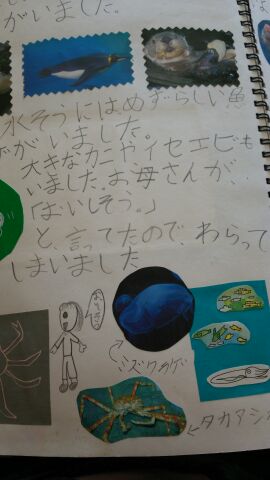 がいました。
水そうにはめずらしい魚
がいました。
大きなカニやイセエビも
いました。お母さんが、
「おいしそう。」
と、言ってたので、わらって
しまいました
ミズクラゲ
タカアシ